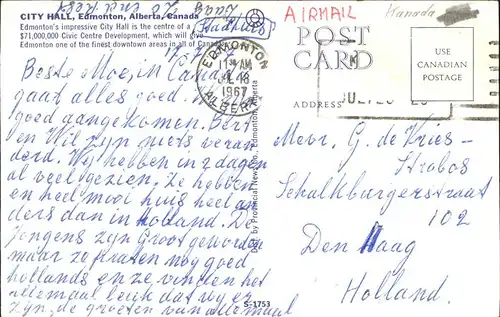 CITY HALL, Edmonton, Alberta, Canada
Edmonton's impressive City Hall is the centre of a
$71,000,000 Civic Centre Development, which will give
Edmonton one of the finest downtown areas in all of Canada.
(Stadhuis)
17.7.67
Beste Moe, in Canada
gaat alles goed.
goed aangekomen. Bert
en Wil zijn niets veran
derd. Wij hebben in 2 dagen
al veel gezien, ze hebben
en heel mooi huis heel an
ders dan in Holland. De
Jongens zijn Groot geworden
maar ze praten nog goed
hollands en ze vinden het
allemaal leuk dat wij er
zijn, de groeten van allemaal
EDMONTON
AM
JUL 18
1967
ALBERTA
Provincial News Co., Edmonton, Alberta
S-1753
AIRMAIL
Kanada
POST
CARD
ADDRESS
USE
CANADIAN
POSTAGE
Mevr. G. de Vries-
Strobos
Schalkburgerstraat
102
Den Haag
Holland.